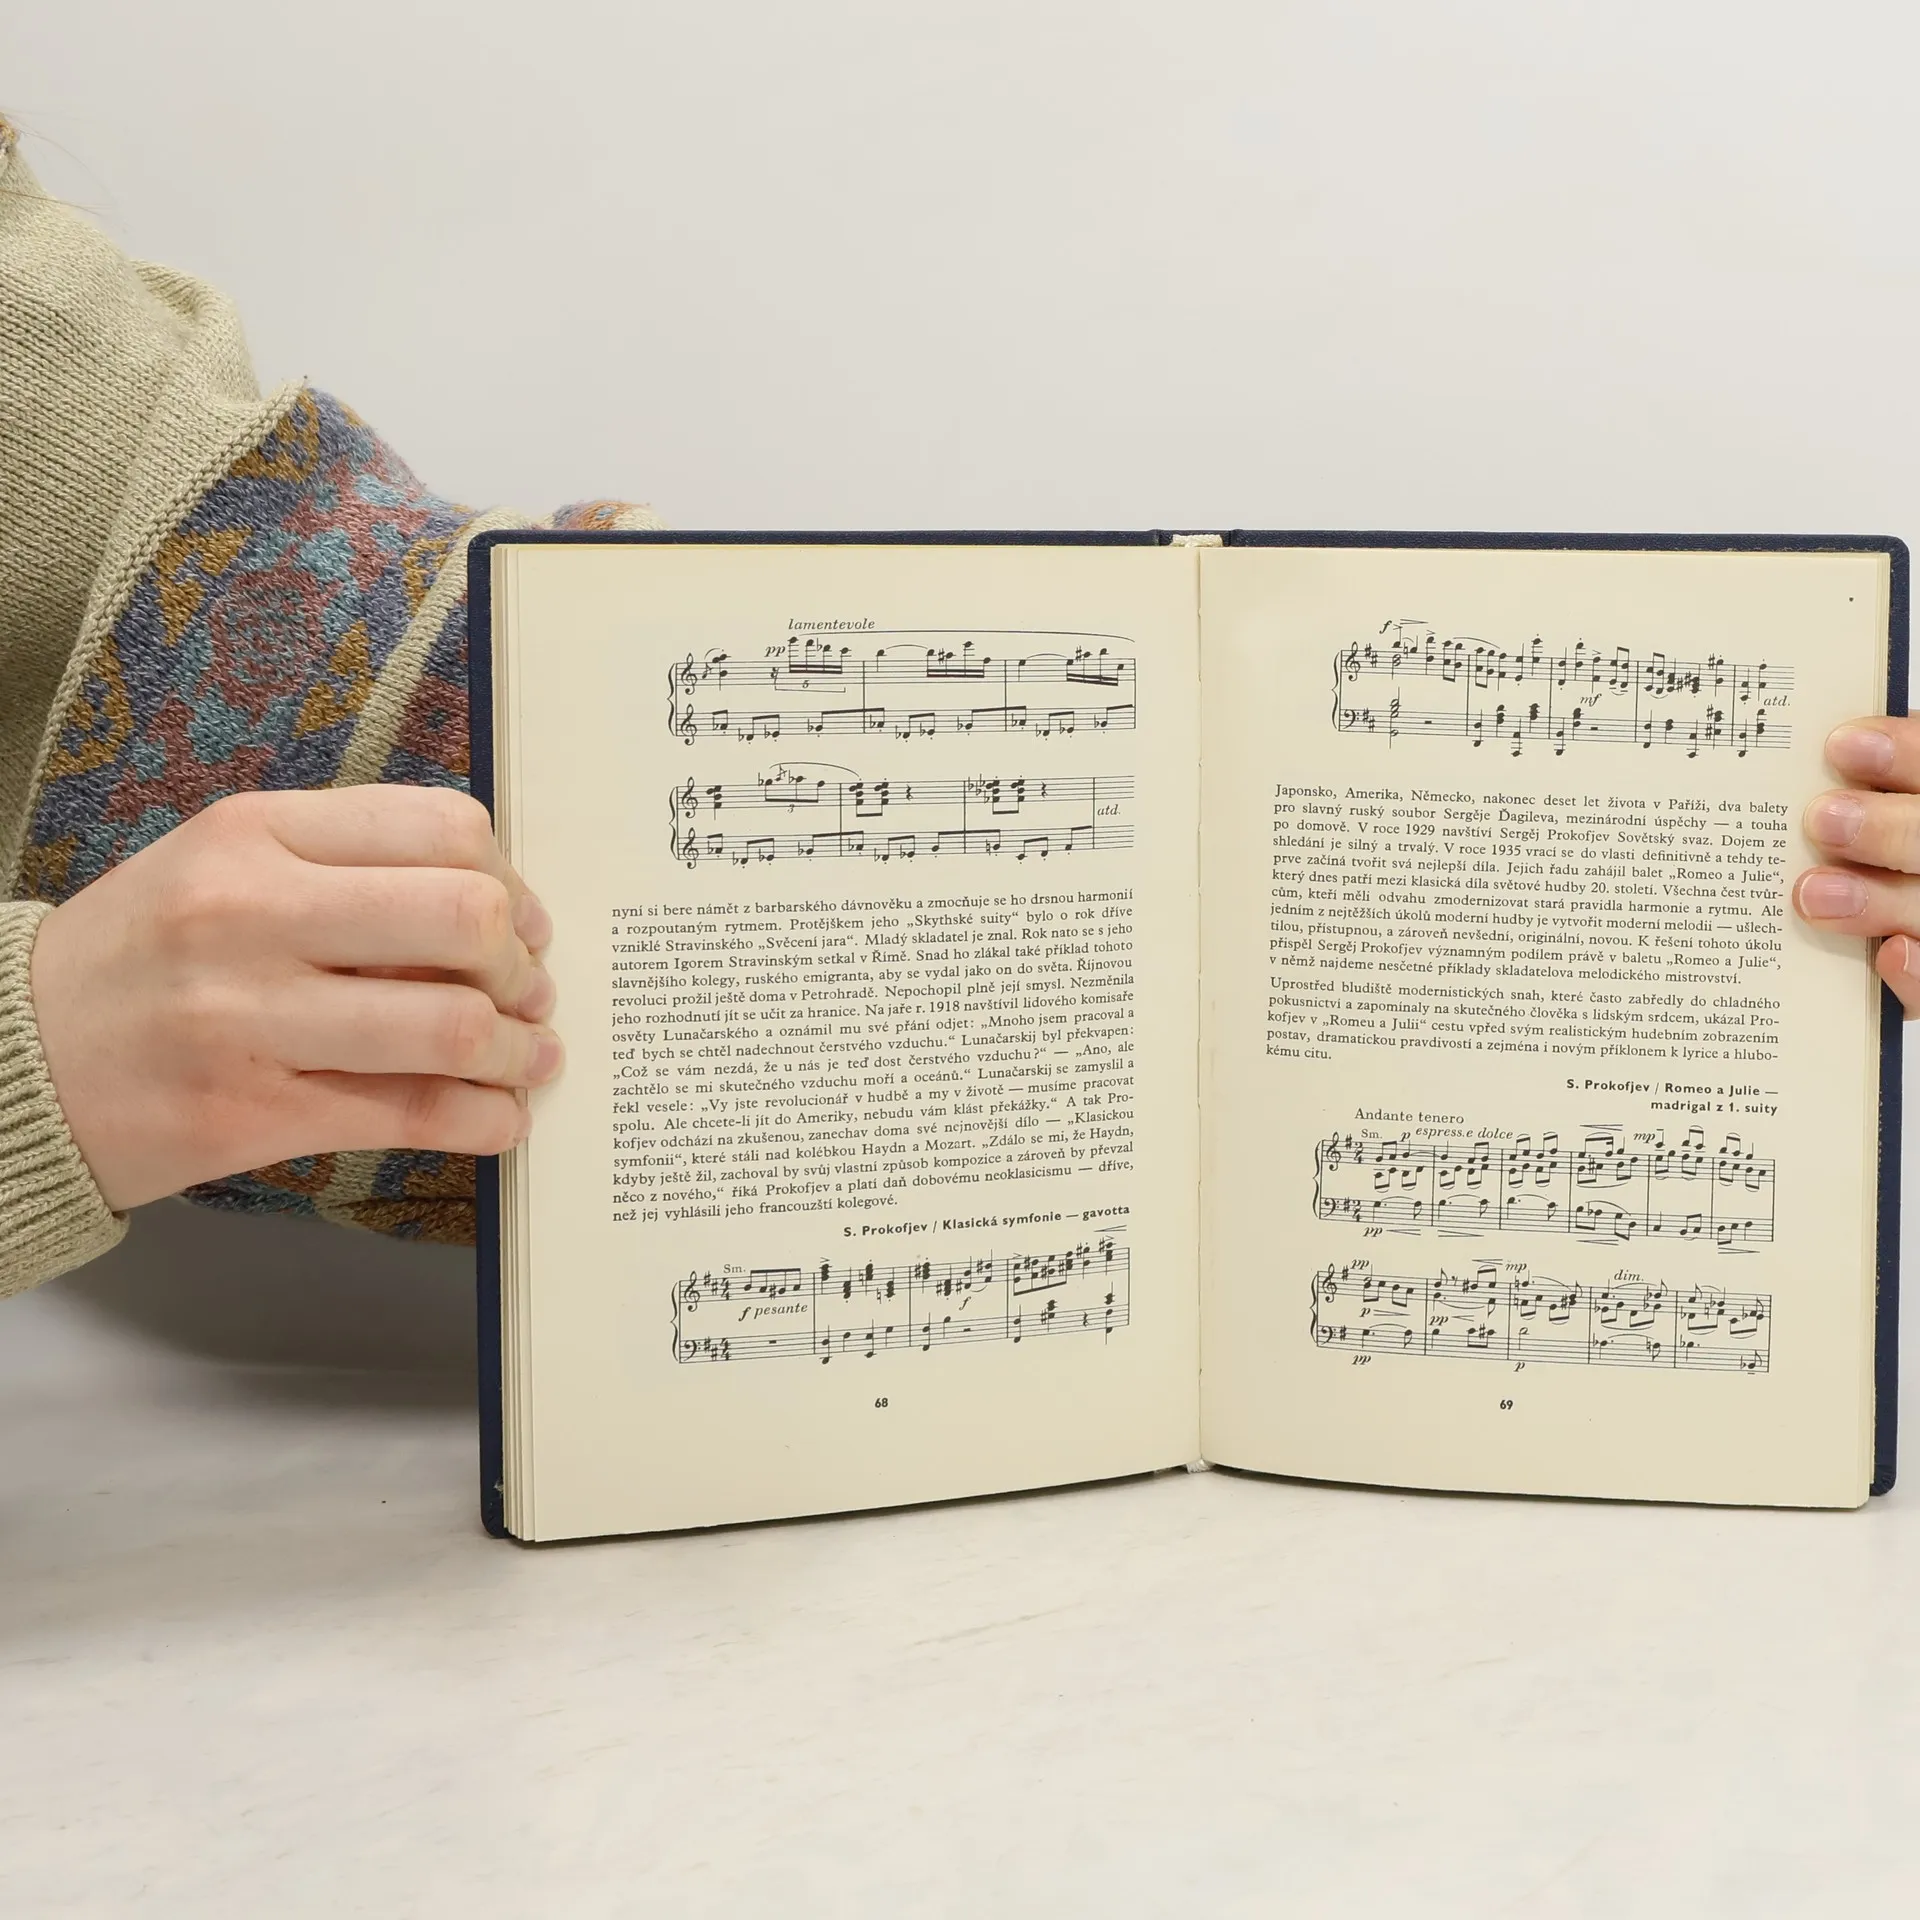 lamentevole
pp
5
3
atd.
nyní si bere námět z barbarského dávnověku a zmocňuje se ho drsnou harmonií
a rozpoutaným rytmem. Protějškem jeho „Skythské suity“ bylo o rok dříve
vzniklé Stravinského „Svěcení jara“. Mladý skladatel je znal. Rok nato se s jeho
autorem Igorem Stravinským setkal v Římě. Snad ho zlákal také příklad tohoto
slavnějšího kolegy, ruského emigranta, aby se vydal jako on do světa. Říjnovou
revoluci prožil ještě doma v Petrohradě. Nepochopil plně její smysl. Nezměnila
jeho rozhodnutí jít se učit za hranice. Na jaře r. 1918 navštívil lidového komisaře
osvěty Lunačarského a oznámil mu své přání odjet: „Mnoho jsem pracoval a
teď bych se chtěl nadechnout čerstvého vzduchu.“ Lunačarskij byl překvapen:
„Což se vám nezdá, že u nás je teď dost čerstvého vzduchu?“ — „Ano, ale
zachtělo se mi skutečného vzduchu moří a oceánů.“ Lunačarskij se zamyslil a
řekl vesele: „Vy jste revolucionář v hudbě a my v životě — musíme pracovat
spolu. Ale chcete-li jít do Ameriky, nebudu vám klást překážky.“ A tak Pro-
kofjev odchází na zkušenou, zanechav doma své nejnovější dílo — „Klasickou
symfonii“, které stáli nad kolébkou Haydn a Mozart. „Zdálo se mi, že Haydn,
kdyby ještě žil, zachoval by svůj vlastní způsob kompozice a zároveň by převzal
něco z nového,“ říká Prokofjev a platí daň dobovému neoklasicismu — dříve,
než jej vyhlásili jeho francouzští kolegové.
S. Prokofjev / Klasická symfonie — gavotta
Sm.
f pesante
f
68
f
mf
atd.
Japonsko, Amerika, Německo, nakonec deset let života v Paříži, dva balety
pro slavný ruský soubor Sergěje Ďagileva, mezinárodní úspěchy — a touha
po domově. V roce 1929 navštíví Sergěj Prokofjev Sovětský svaz. Dojem ze
shledání je silný a trvalý. V roce 1935 vrací se do vlasti definitivně a tehdy te-
prve začíná tvořit svá nejlepší díla. Jejich řadu zahájil balet „Romeo a Julie“,
který dnes patří mezi klasická díla světové hudby 20. století. Všechna čest tvůr-
cům, kteří měli odvahu zmodernizovat stará pravidla harmonie a rytmu. Ale
jedním z nejtěžších úkolů moderní hudby je vytvořit moderní melodii — ušlech-
tilou, přístupnou, a zároveň nevšední, originální, novou. K řešení tohoto úkolu
přispěl Sergěj Prokofjev významným podílem právě v baletu „Romeo a Julie“,
v němž najdeme nesčetné příklady skladatelova melodického mistrovství.
Uprostřed bludiště modernistických snah, které často zabředly do chladného
pokusnictví a zapomínaly na skutečného člověka s lidským srdcem, ukázal Pro-
kofjev v „Romeu a Julii“ cestu vpřed svým realistickým hudebním zobrazením
postav, dramatickou pravdivostí a zejména i novým příklonem k lyrice a hlubo-
kému citu.
S. Prokofjev / Romeo a Julie —
madrigal z 1. suity
Andante tenero
Sm. p espress.e dolce mp
pp
pp mp dim.
p pp
pp p
69